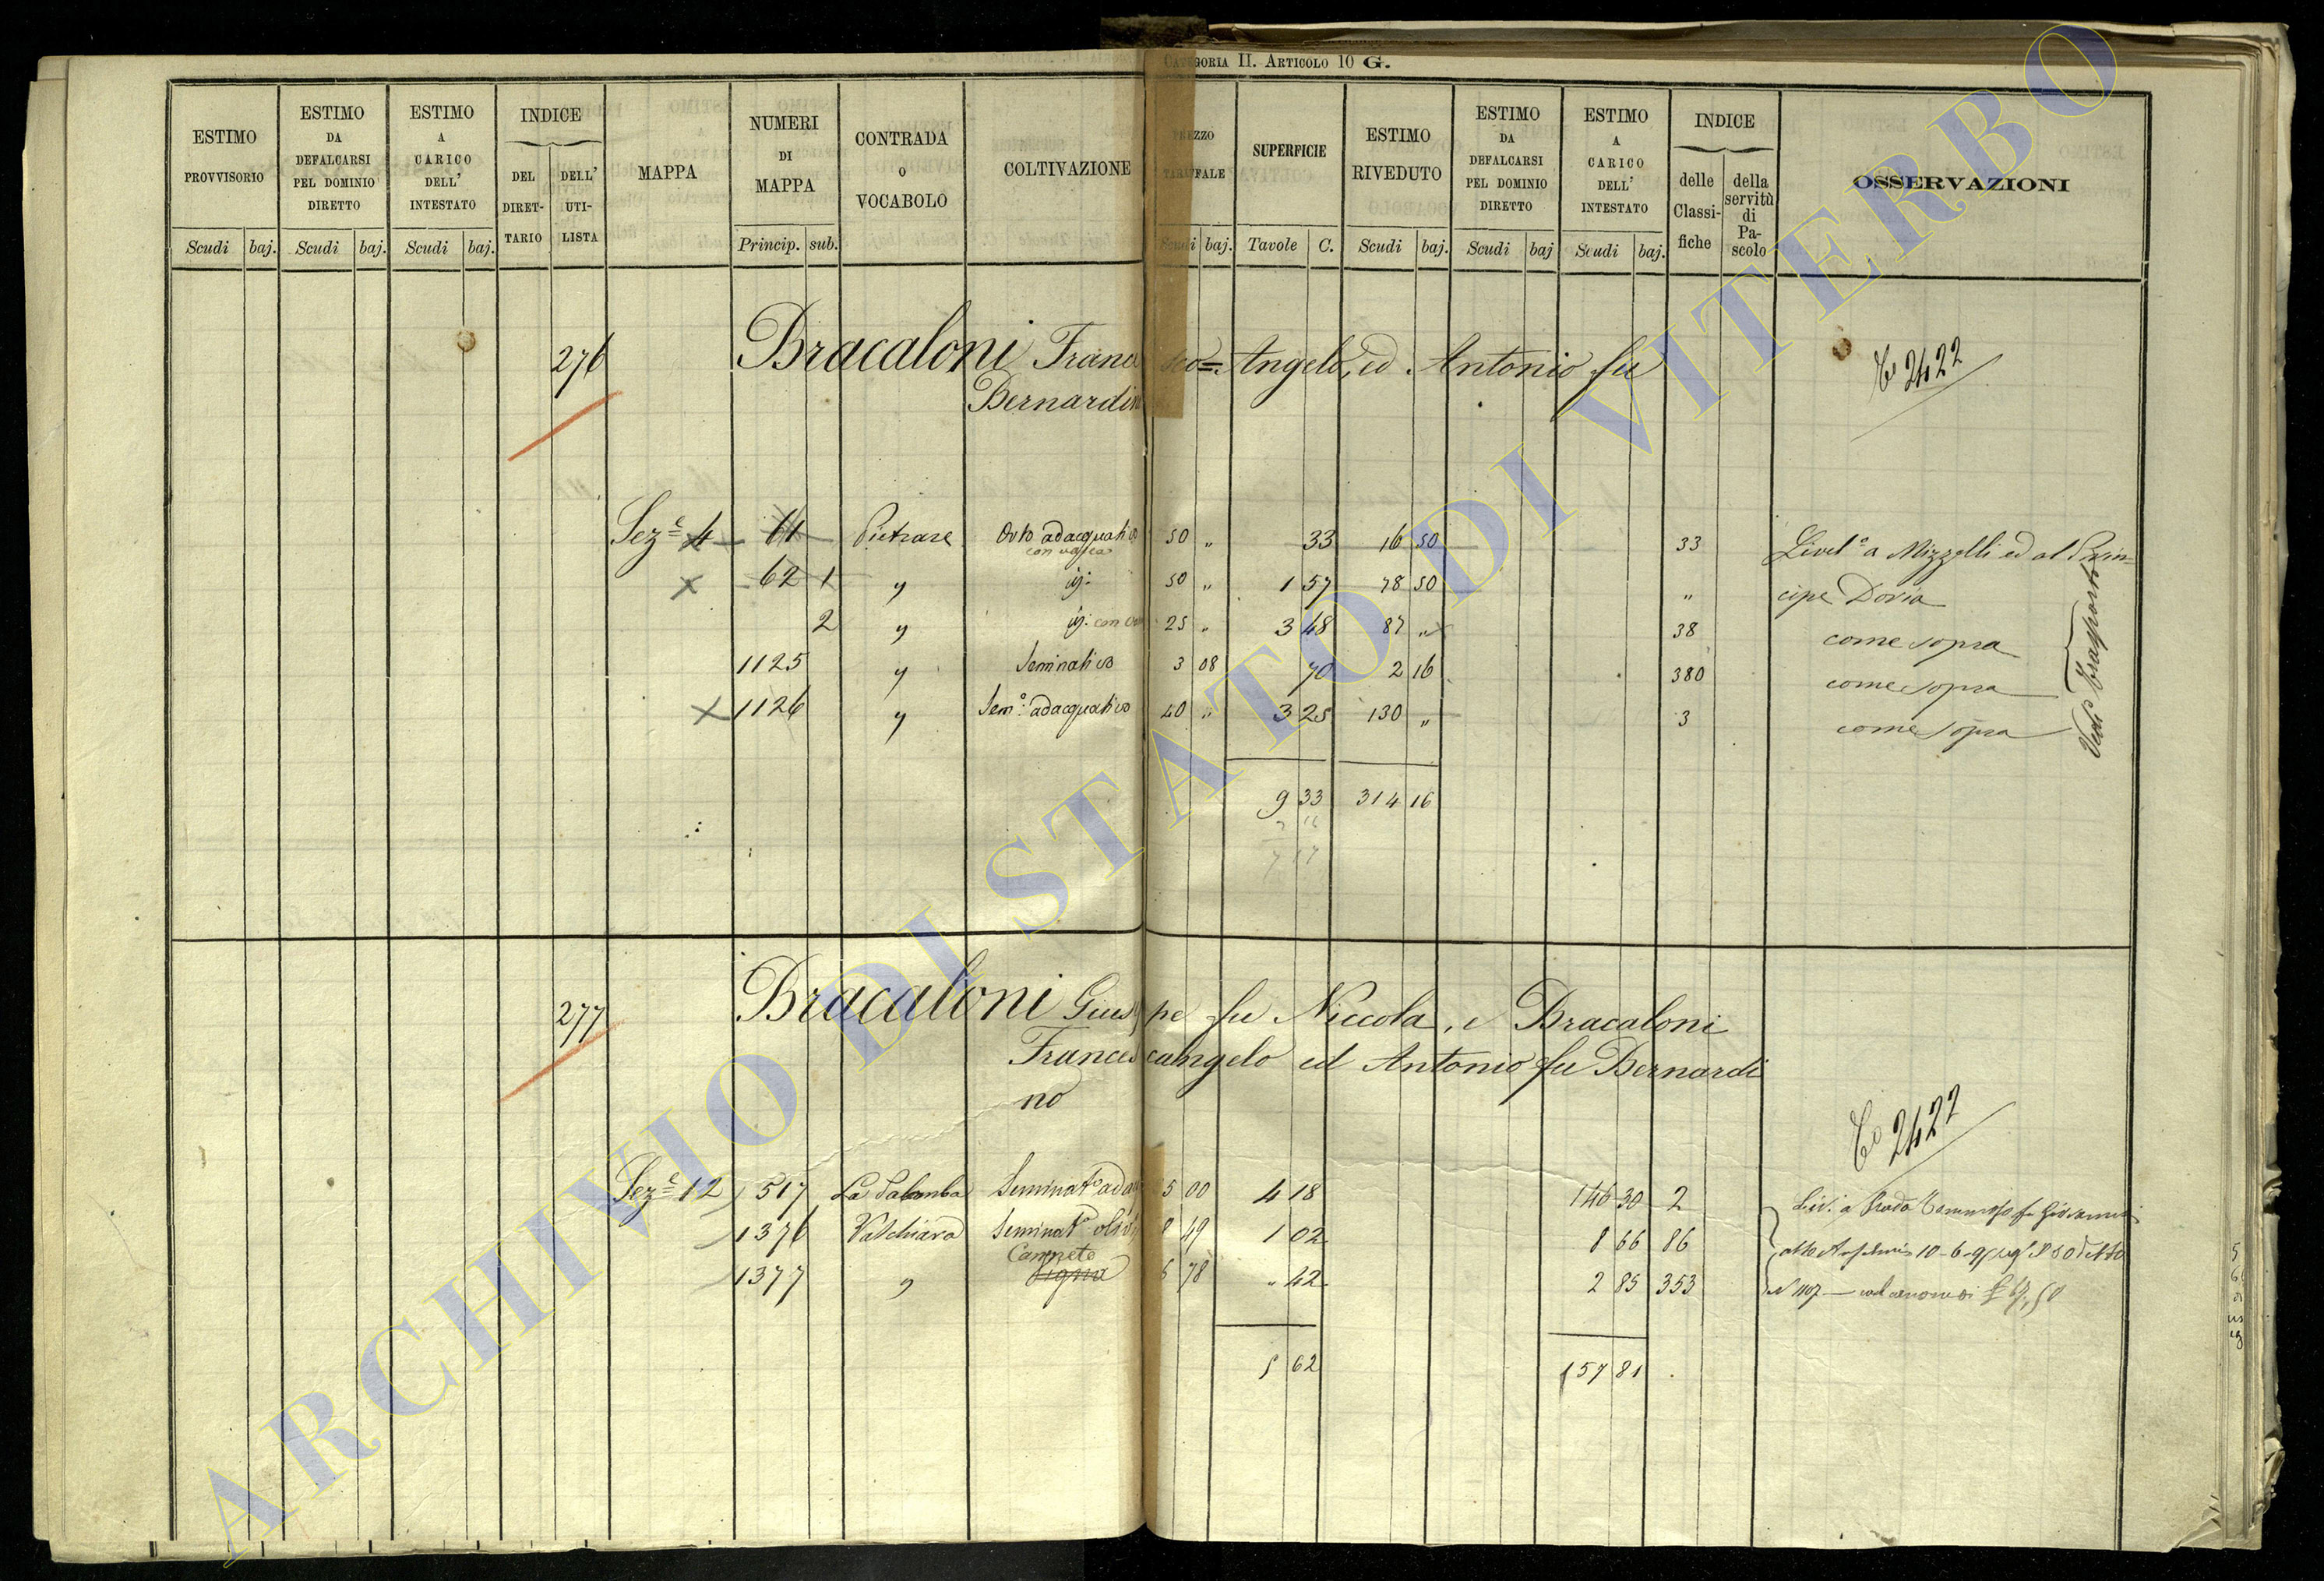 CATEGORIA II. ARTICOLO 10 G.
ESTIMO PROVVISORIO Scudi baj.
ESTIMO DA DEFALCARSI PEL DOMINIO DIRETTO Scudi baj.
ESTIMO A CARICO DELL' INTESTATO Scudi baj.
INDICE DEL DIRETTARIO DELL' UTILISTA
MAPPA
NUMERI DI MAPPA Princip. sub.
CONTRADA o VOCABOLO
COLTIVAZIONE
PREZZO TARIFFALE Scudi baj.
SUPERFICIE Tavole C.
ESTIMO RIVEDUTO Scudi baj.
ESTIMO DA DEFALCARSI PEL DOMINIO DIRETTO Scudi baj
ESTIMO A CARICO DELL' INTESTATO Scudi baj.
INDICE delle Classifiche della servitù di Pascolo
OSSERVAZIONI
276 Bracaloni Francesco=Angelo, ed Antonio fu
Bernardin
2422
Sez.e 4 61 Pietrare Orto adacquativo 50 „ 33 16 50 33 Livel.o a Mizzelli ed al Prin=
con vasca
62 1 „ id. 50 „ 1 57 78 50 „ cipe Doria
2 „ id. con 25 „ 3 48 87 „ 38 come sopra
1125 „ Seminativo 3 08 70 2 16 380 come sopra
1126 „ Sem.o adacquativo 40 „ 3 25 130 „ 3 come sopra
Vedi Trasporto
9 33 314 16
277 Bracaloni Giuseppe fu Niccola, e Bracaloni
Francescangelo ed Antonio fu Bernardi
no
2422
Sez.e 12 517 La Palomba Seminat.o adac 5 00 4 18 146 30 2
1376 Valchiara Seminat.o oliv 8 49 1 02 8 66 86
Canneto
1377 „ Vigna 6 78 „ 42 2 85 353
5 62 157 81
ARCHIVIO DI STATO DI VITERBO